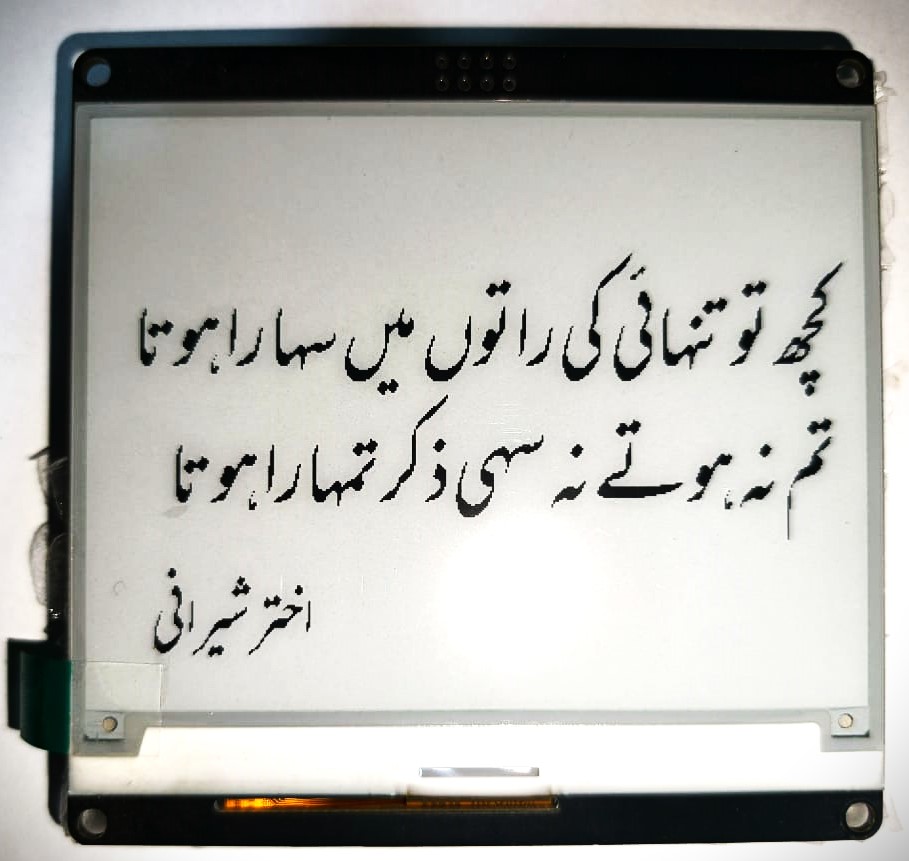 کچھ تو تنہائی کی راتوں میں سہارا ہوتا
تم نہ ہوتے نہ سہی ذکر تمہارا ہوتا
اختر شیرانی